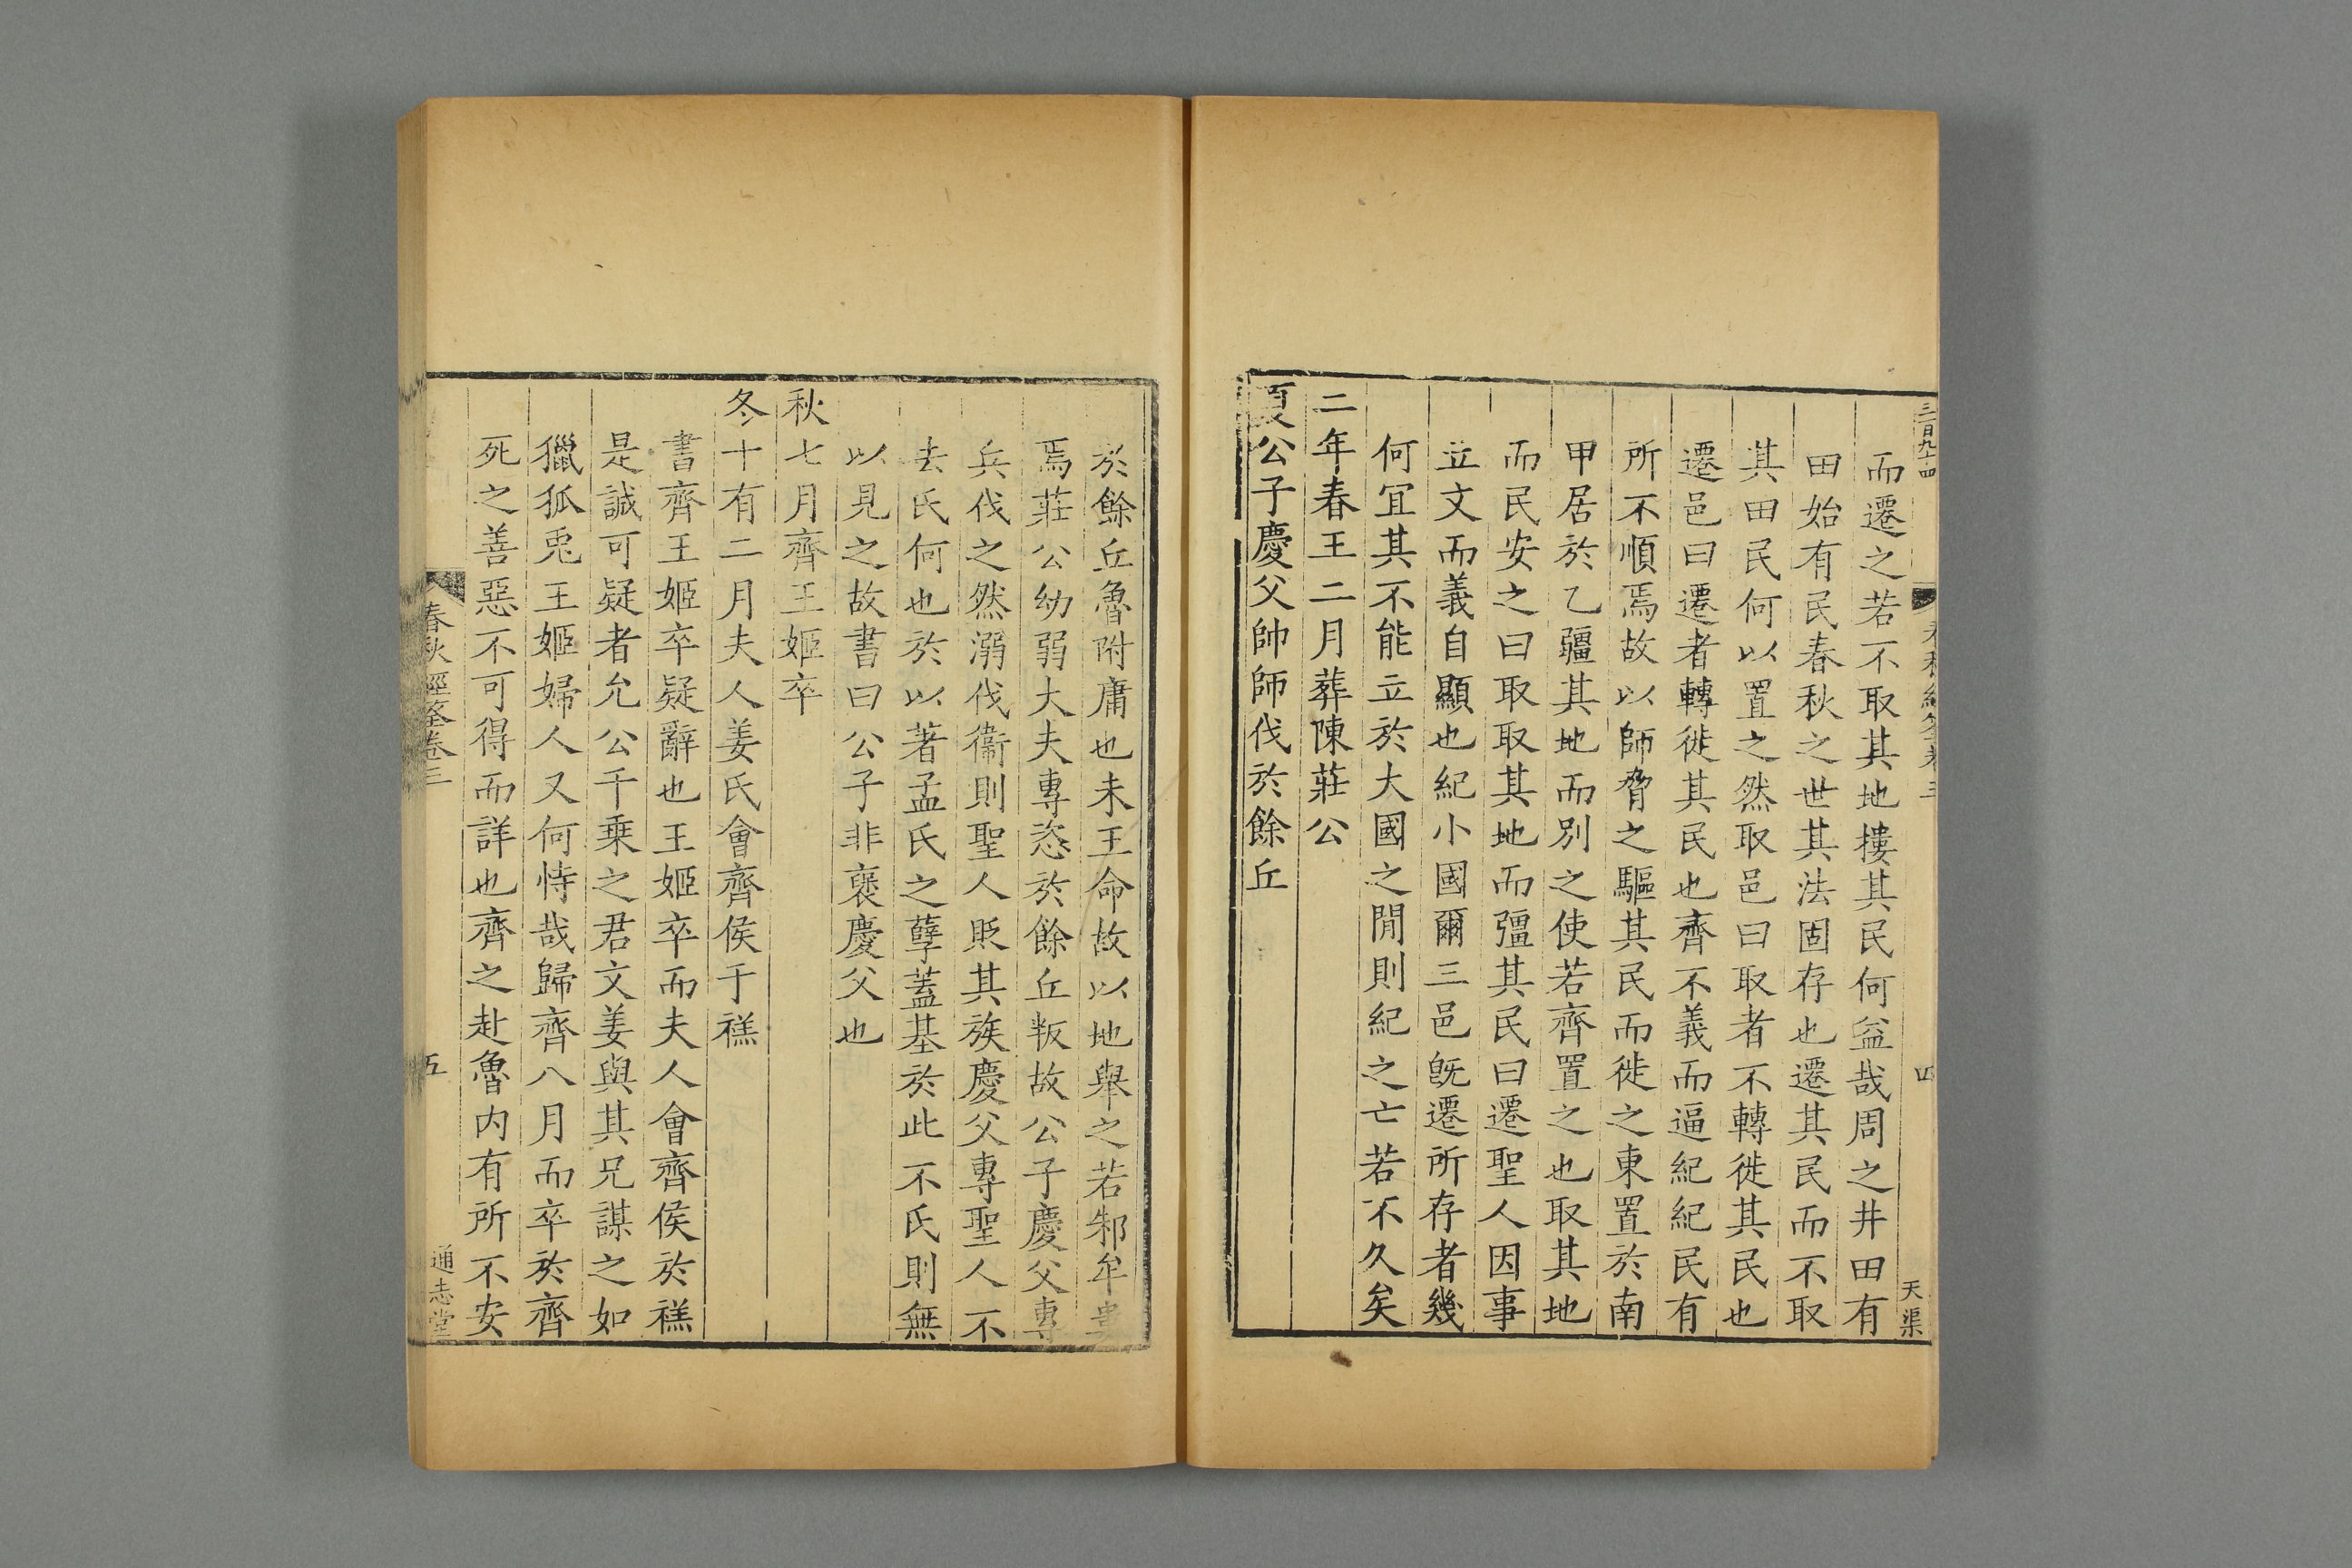 三百九十四
春秋經筌卷三
四
天渠
而遷之若不取其地摟其民何益哉周之井田有
田始有民春秋之世其法固存也遷其民而不取
其田民何以置之然取邑曰取者不轉徙其民也
遷邑曰遷者轉徙其民也齊不義而逼紀紀民有
所不順焉故以師脅之驅其民而徙之東置於南
甲居於乙疆其地而別之使若齊置之也取其地
而民安之曰取取其地而彊其民曰遷聖人因事
立文而義自顯也紀小國爾三邑旣遷所存者幾
何冝其不能立於大國之閒則紀之亡若不久矣
二年春王二月葬陳莊公
夏公子慶父帥師伐於餘丘
於餘丘魯附庸也未王命故以地舉之若邾牟婁
焉莊公幼弱大夫專恣於餘丘叛故公子慶父專
兵伐之然溺伐衞則聖人貶其族慶父專聖人不
去氏何也於以著孟氏之孽蓋基於此不氏則無
以見之故書曰公子非褒慶父也
秋七月齊王姬卒
冬十有二月夫人姜氏會齊侯于禚
書齊王姬卒疑辭也王姬卒而夫人會齊侯於禚
是誠可疑者允公千乗之君文姜與其兄謀之如
獵狐兎王姬婦人又何恃哉歸齊八月而卒於齊
死之善惡不可得而詳也齊之赴魯内有所不安
春秋經筌卷三
五
通志堂